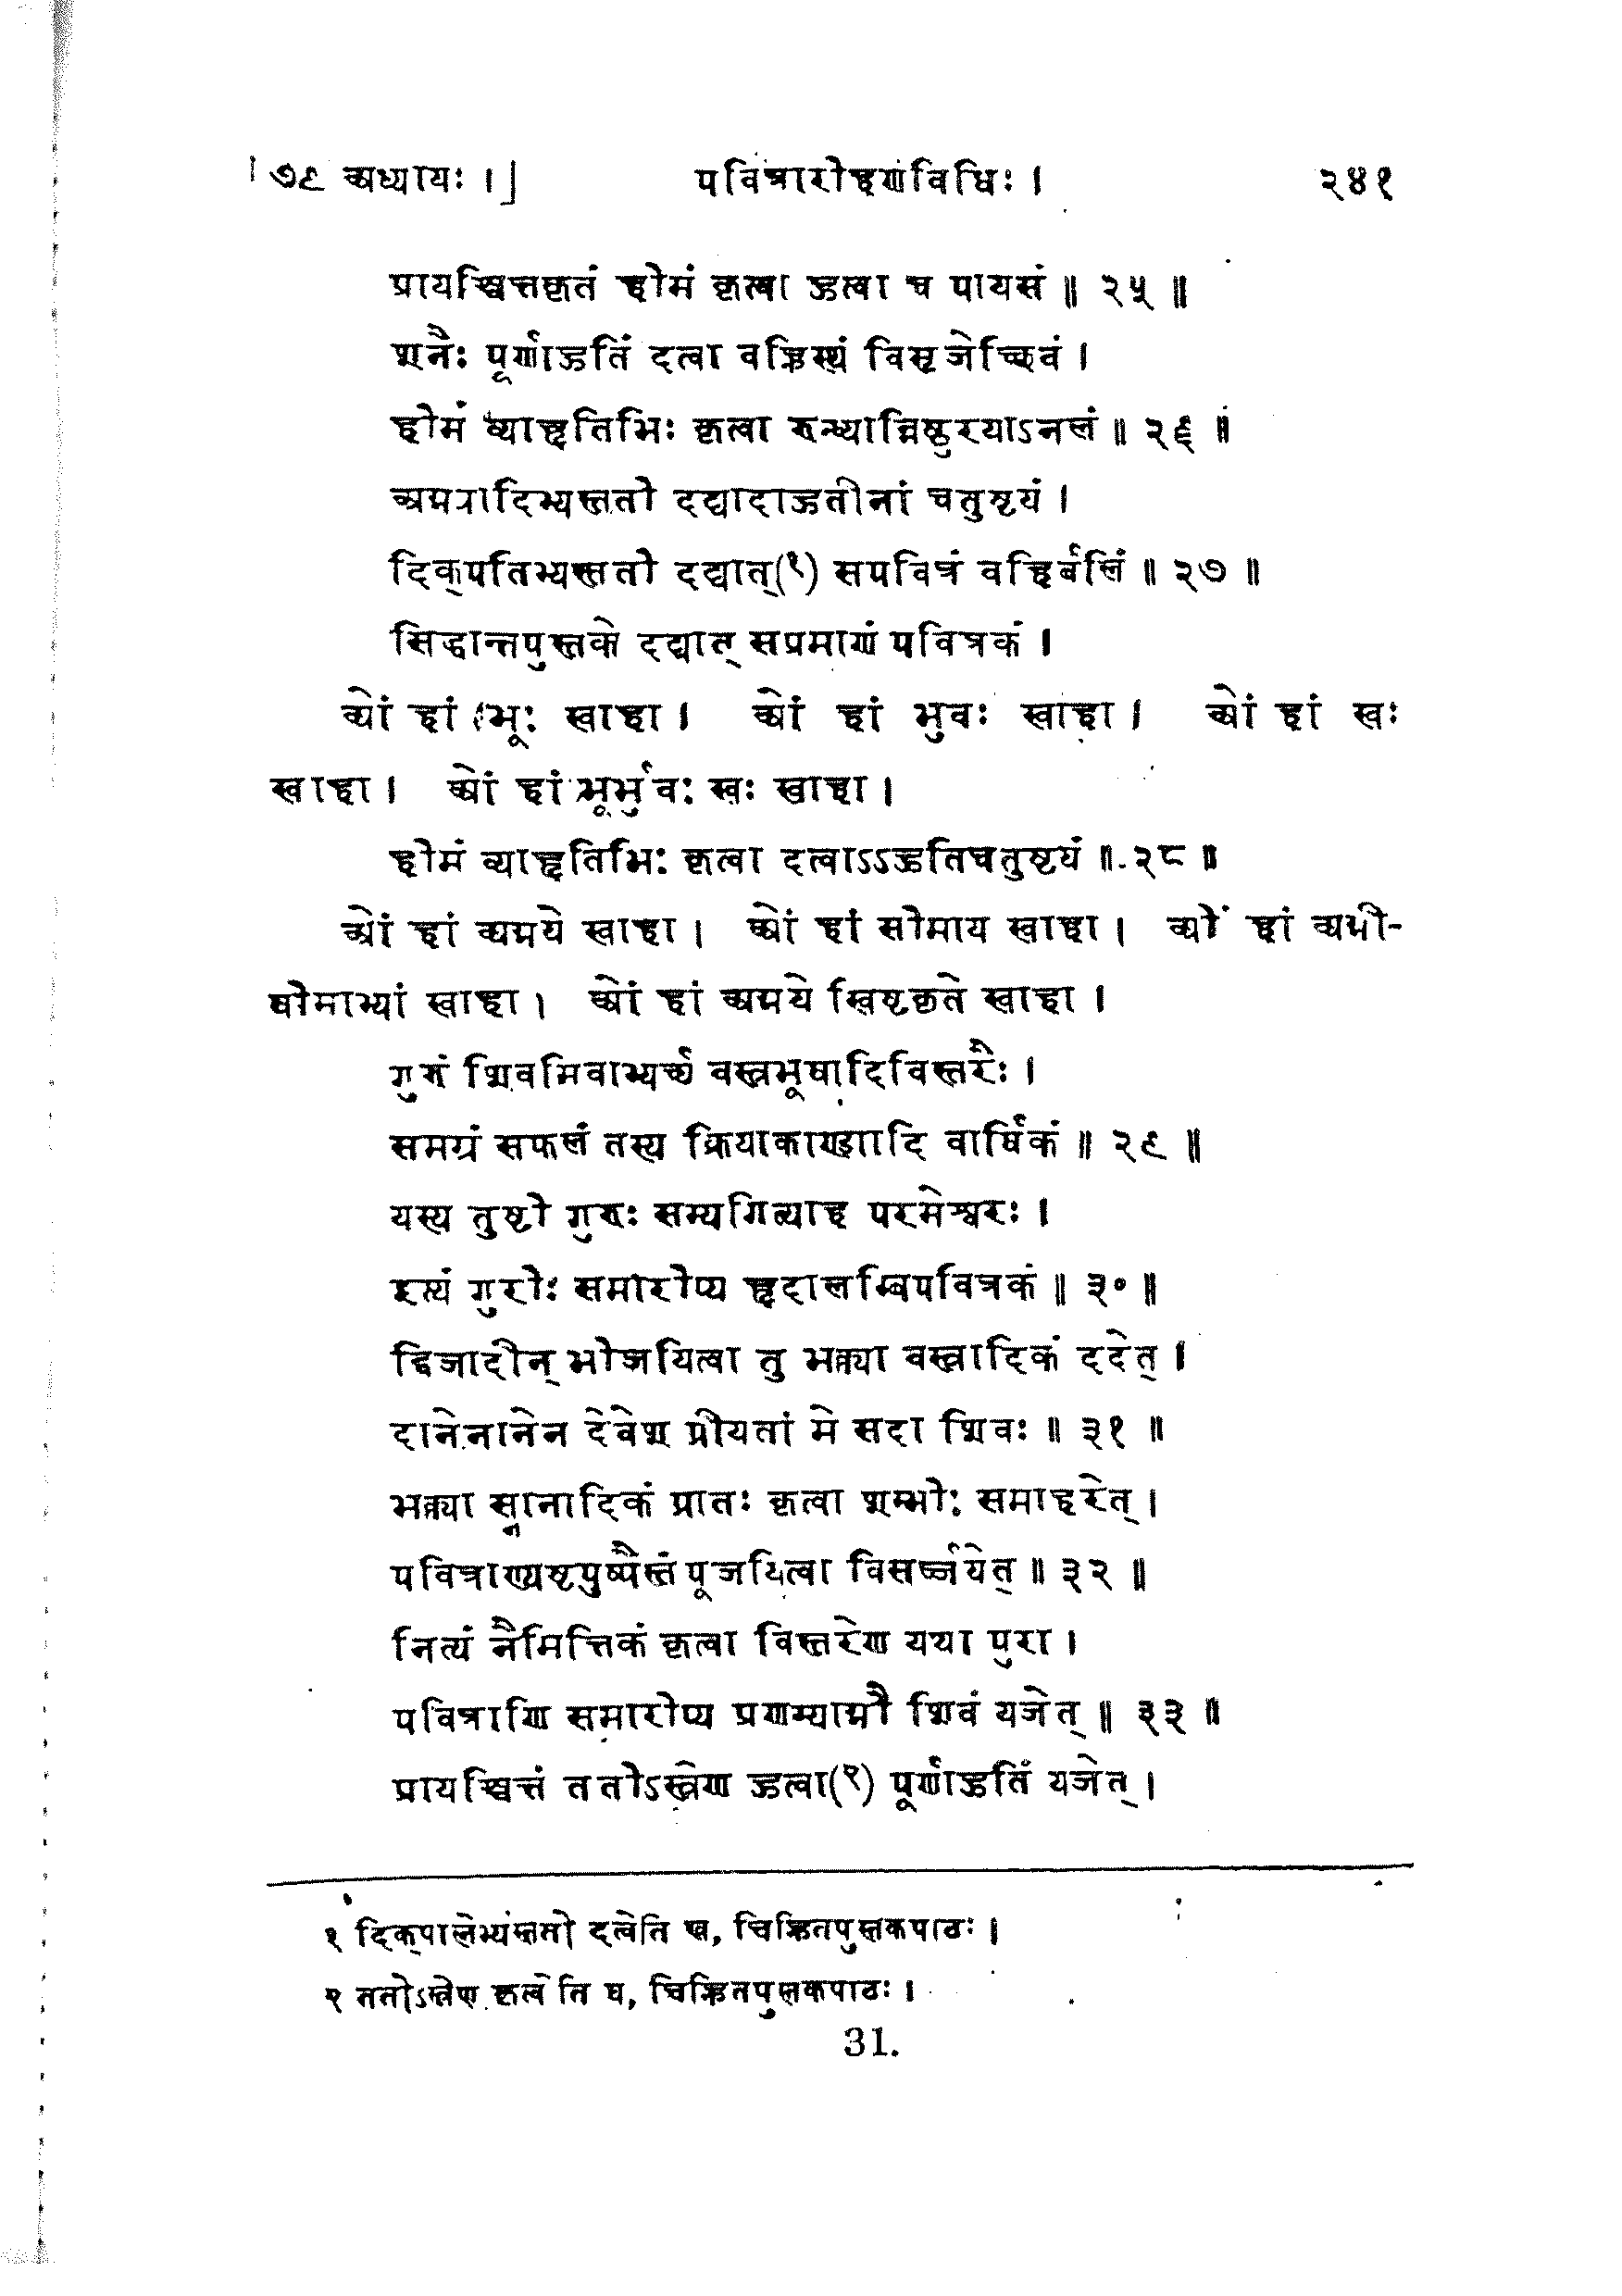 ७९ अध्यायः ।] पवित्रारोहणविधिः । २४१
प्रायश्चित्तकृतं होमं कृत्वा हुत्वा च पायसं ॥ २५ ॥
शनैः पूर्णाहुतिं दत्वा वह्निस्थं विसृजेच्छिवं ।
होमं व्याहृतिभिः कृत्वा रुन्ध्यान्निष्ठुरयाऽनलं ॥ २६ ॥
अग्न्यादिभ्यस्ततो दद्यादाहुतीनां चतुष्टयं ।
दिक्पतिभ्यस्ततो दद्यात्(१) सपवित्रं वहिर्बलिं ॥ २७ ॥
सिद्धान्तपुस्तके दद्यात् सप्रमाणं पवित्रकं ।
ओं हां भूः स्वाहा । ओं हां भुवः स्वाहा । ओं हां स्वः
स्वाहा । ओं हां भूर्भुवः स्वः स्वाहा ।
होमं व्याहृतिभिः कृत्वा दत्वाऽऽहुतिचतुष्टयं ॥ २८ ॥
ओं हां अग्नये स्वाहा । ओं हां सोमाय स्वाहा । ओं हां अग्नी-
षोमाभ्यां स्वाहा । ओं हां अग्नये स्विष्टकृते स्वाहा ।
गुरुं शिवमिवाभ्यर्च्य वस्त्रभूषादिविस्तरैः ।
समग्रं सफलं तस्य क्रियाकाण्डादि वार्षिकं ॥ २९ ॥
यस्य तुष्टो गुरुः सम्यगित्याह परमेश्वरः ।
इत्थं गुरोः समारोप्य हृदालम्बिपवित्रकं ॥ ३० ॥
द्विजादीन् भोजयित्वा तु भक्त्या वस्त्रादिकं ददेत् ।
दानेनानेन देवेश प्रीयतां मे सदा शिवः ॥ ३१ ॥
भक्त्या स्नानादिकं प्रातः कृत्वा शम्भोः समाहरेत् ।
पवित्राण्यष्टपुष्पैस्तं पूजयित्वा विसर्ज्जयेत् ॥ ३२ ॥
नित्यं नैमित्तिकं कृत्वा विस्तरेण यथा पुरा ।
पवित्राणि समारोप्य प्रणम्याग्नौ शिवं यजेत् ॥ ३३ ॥
प्रायश्चित्तं ततोऽस्त्रेण हुत्वा(२) पूर्णाहुतिं यजेत् ।
१ दिक्पालेभ्यस्ततो दत्वेति ख, चिह्नितपुस्तकपाठः ।
२ ततोऽस्त्रेण कृत्वेति घ, चिह्नितपुस्तकपाठः ।
31.